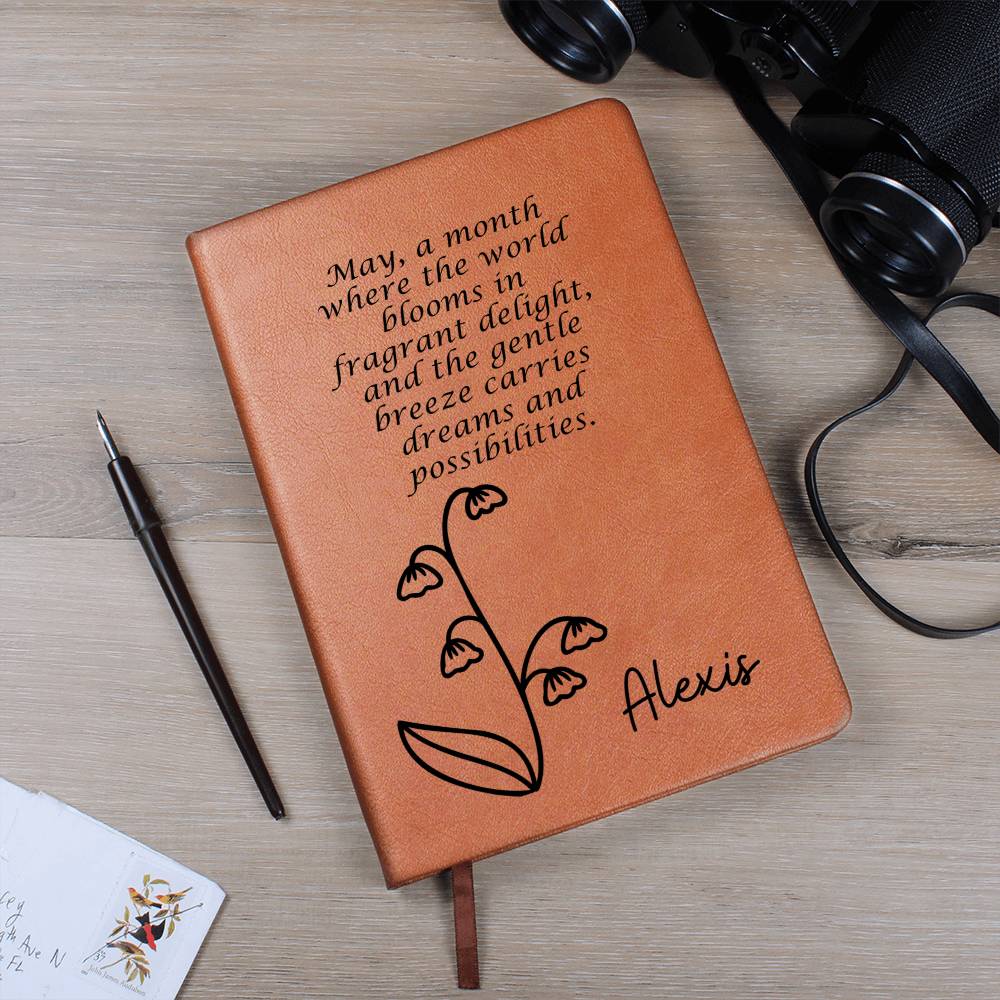 May, a month
where the world
blooms in
fragrant delight,
and the gentle
breeze carries
dreams and
possibilities.
Alexis
Ave N
FL
37
John James Audubon